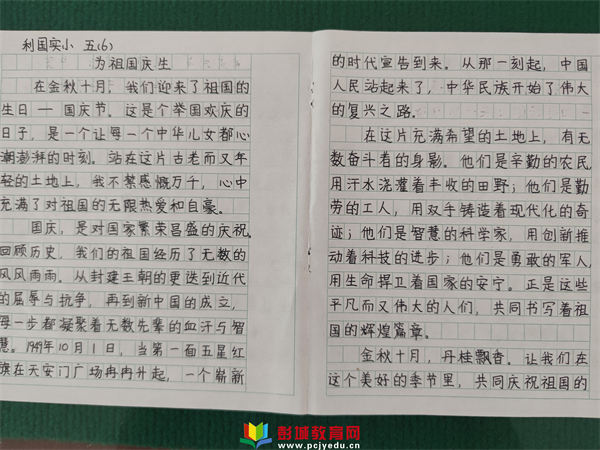 利国实小 五(6)
为祖国庆生
在金秋十月，我们迎来了祖国的
生日——国庆节。这是个举国欢庆的
日子，是一个让每一个中华儿女都心
潮澎湃的时刻。站在这片古老而又年
轻的土地上，我不禁感慨万千，心中
充满了对祖国的无限热爱和自豪。
国庆，是对国家繁荣昌盛的庆祝。
回顾历史，我们的祖国经历了无数的
风风雨雨。从封建王朝的更迭到近代
的屈辱与抗争，再到新中国的成立，
每一步都凝聚着无数先辈的血汗与智
慧。1949年10月1日，当第一面五星红
旗在天安门广场冉冉升起，一个崭新
的时代宣告到来。从那一刻起，中国
人民站起来了，中华民族开始了伟大
的复兴之路。
在这片充满希望的土地上，有无
数奋斗着的身影。他们是辛勤的农民，
用汗水浇灌着丰收的田野；他们是勤
劳的工人，用双手铸造着现代化的奇
迹；他们是智慧的科学家，用创新推
动着科技的进步；他们是勇敢的军人，
用生命捍卫着国家的安宁。正是这些
平凡而又伟大的人们，共同书写着祖
国的辉煌篇章。
金秋十月，丹桂飘香。让我们在
这个美好的季节里，共同庆祝祖国的
彭城教育网
www.pcjyedu.cn